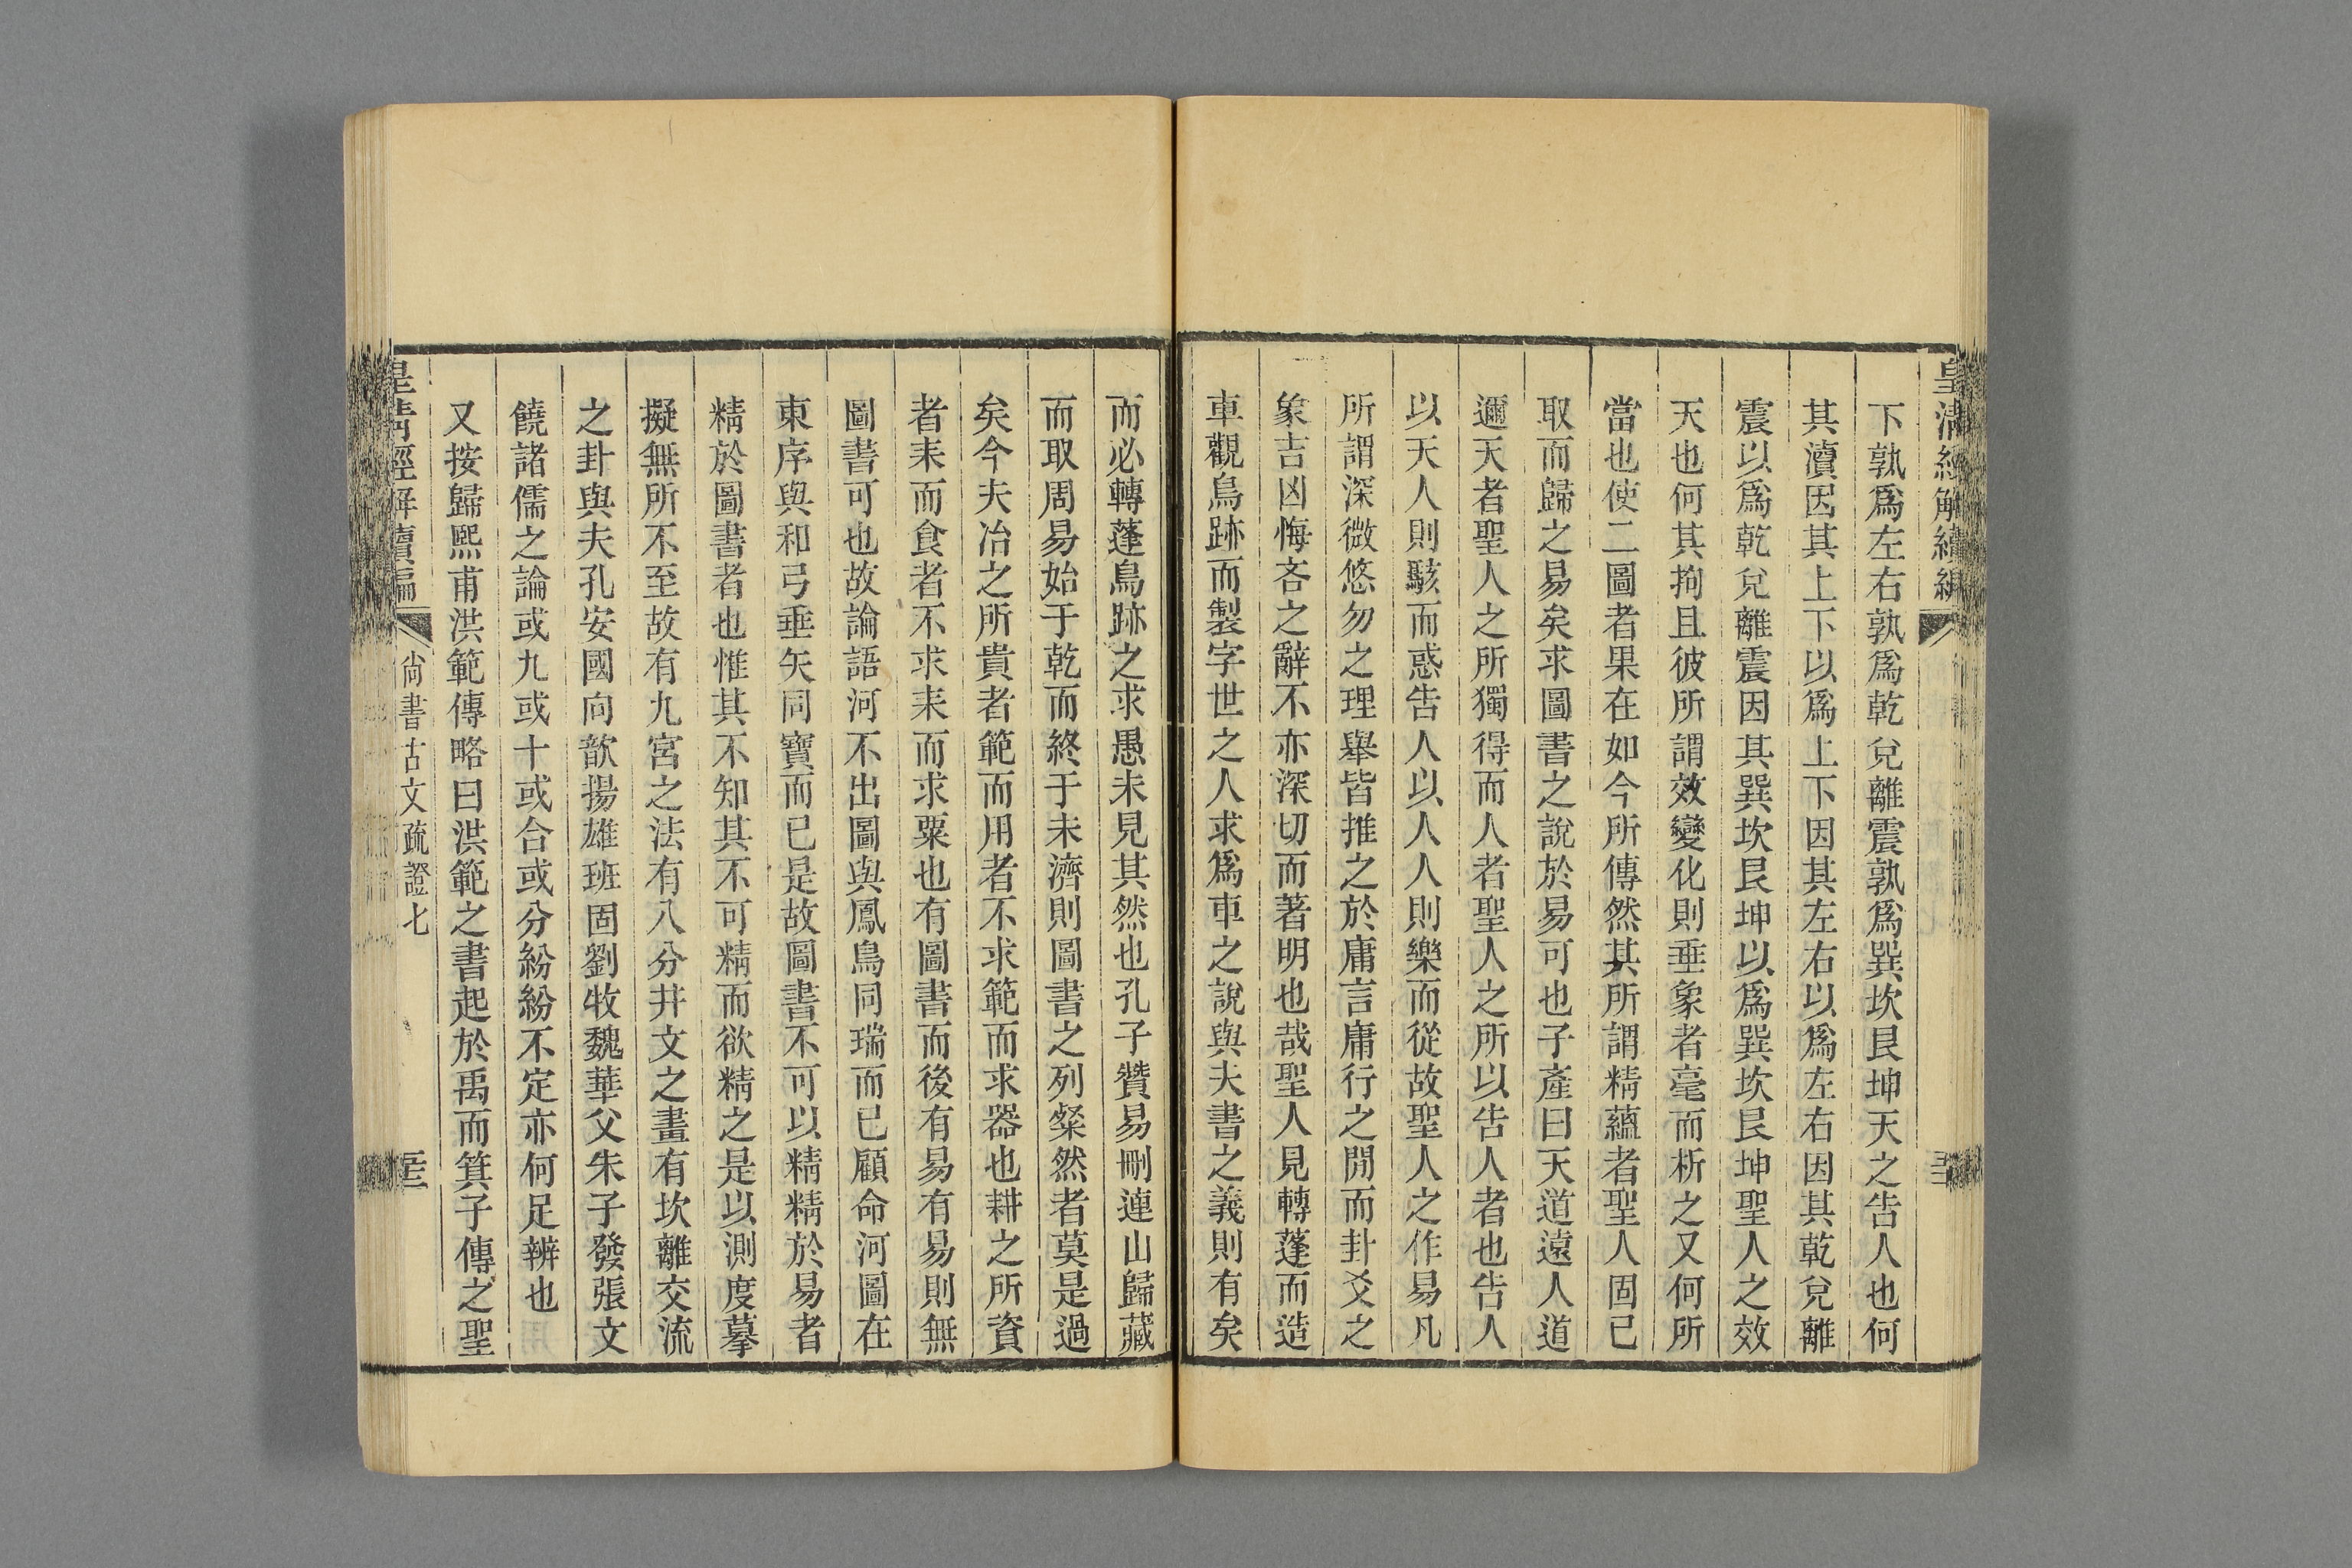 皇清經解續編
下孰爲左右孰爲乾兌離震孰爲巽坎艮坤天之告人也何
其瀆因其上下以爲上下因其左右以爲左右因其乾兌離
震以爲乾兌離震因其巽坎艮坤以爲巽坎艮坤聖人之效
天也何其拘且彼所謂效變化則垂象者毫而析之又何所
當也使二圖者果在如今所傳然其所謂精蘊者聖人固已
取而歸之易矣求圖書之說於易可也子產曰天道遠人道
邇天者聖人之所獨得而人者聖人之所以告人者也告人
以天人則駭而惑告人以人人則樂而從故聖人之作易凡
所謂深微悠勿之理舉皆推之於庸言庸行之閒而卦爻之
象吉凶悔吝之辭不亦深切而著明也哉聖人見轉蓬而造
車觀鳥跡而製字世之人求爲車之說與夫書之義則有矣
而必轉蓬鳥跡之求愚未見其然也孔子贊易刪連山歸藏
而取周易始于乾而終于未濟則圖書之列粲然者莫是過
矣今夫冶之所貴者範而用者不求範而求器也耕之所資
者耒而食者不求耒而求粟也有圖書而後有易有易則無
圖書可也故論語河不出圖與鳳鳥同瑞而已顧命河圖在
東序與和弓垂矢同寶而已是故圖書不可以精精於易者
精於圖書者也惟其不知其不可精而欲精之是以測度摹
擬無所不至故有九宮之法有八分井文之畫有坎離交流
之卦與夫孔安國向歆揚雄班固劉牧魏華父朱子發張文
饒諸儒之論或九或十或合或分紛紛不定亦何足辨也
又按歸熙甫洪範傳略曰洪範之書起於禹而箕子傳之聖
皇清經解續編
尚書古文疏證七